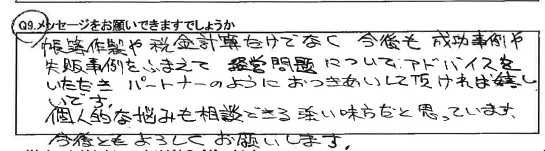 Q9.メッセージをお願いできますでしょうか
帳簿作製や税金計算だけでなく 今後も 成功事例や
失敗事例をふまえて 経営問題 について アドバイスを
いただき パートナーのように おつきあいして頂ければ嬉し
いです。
個人的な悩みも相談できる 強い味方だと思っています。
今後とも よろしく お願いします。